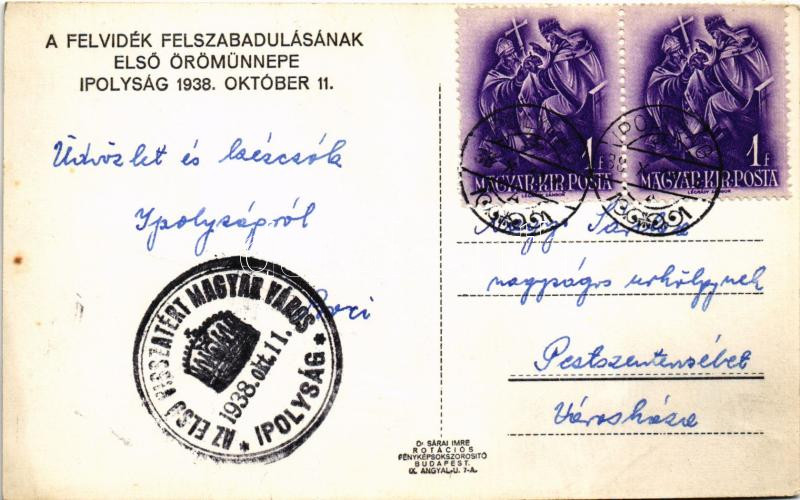 A FELVIDÉK FELSZABADULÁSÁNAK
ELSŐ ÖRÖMÜNNEPE
IPOLYSÁG 1938. OKTÓBER 11.
Üdvözlet és kézcsók
Ipolyságról
AZ ELSŐ VISSZATÉRT MAGYAR VÁROS
1938. okt. 11.
* IPOLYSÁG *
1f
MAGYAR·KIR·POSTA
LÉGRÁDY SÁNDOR
1f
MAGYAR·KIR·POSTA
LÉGRÁDY SÁNDOR
Sándor
nagyságos
Pestszenterzsébet
Városháza
Dr SÁRAI IMRE
ROTÁCIÓS
FÉNYKÉPSOKSZOROSITÓ
BUDAPEST.
IX. ANGYAL-U. 7-A.